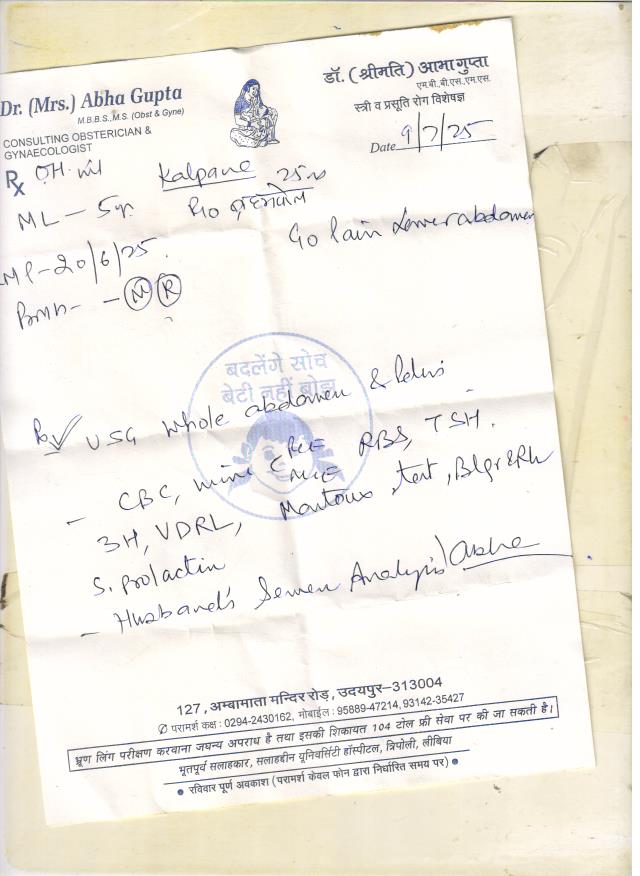 डॉ. (श्रीमति) आभा गुप्ता
एम.बी.,बी.एस.,एम.एस.
स्त्री व प्रसूति रोग विशेषज्ञ
Dr. (Mrs.) Abha Gupta
M.B.B.S.,M.S. (Obst & Gyne)
CONSULTING OBSTERICIAN &
GYNAECOLOGIST
Date 9/7/25
Rx OH. Kalpane 25
ML - 5yr. R/o
LMP-20/6/25. C/o Pain Lower abdomen
M R
बदलेंगे सोच
बेटी नहीं बोझ
USG Whole abdomen & Pelvis
- CBC, Urine C RE ME RBS, TSH.
3H, VDRL, Mantoux test, Bl gr & Rh
S. prolactin
- Husband's Semen Analysis Abha
127, अम्बामाता मन्दिर रोड़, उदयपुर-313004
परामर्श कक्ष : 0294-2430162, मोबाईल : 95889-47214, 93142-35427
भ्रूण लिंग परीक्षण करवाना जघन्य अपराध है तथा इसकी शिकायत 104 टोल फ्री सेवा पर की जा सकती है।
भूतपूर्व सलाहकार, सलाहद्दीन यूनिवर्सिटी हॉस्पीटल, त्रिपोली, लीबिया
• रविवार पूर्ण अवकाश (परामर्श केवल फोन द्वारा निर्धारित समय पर) •